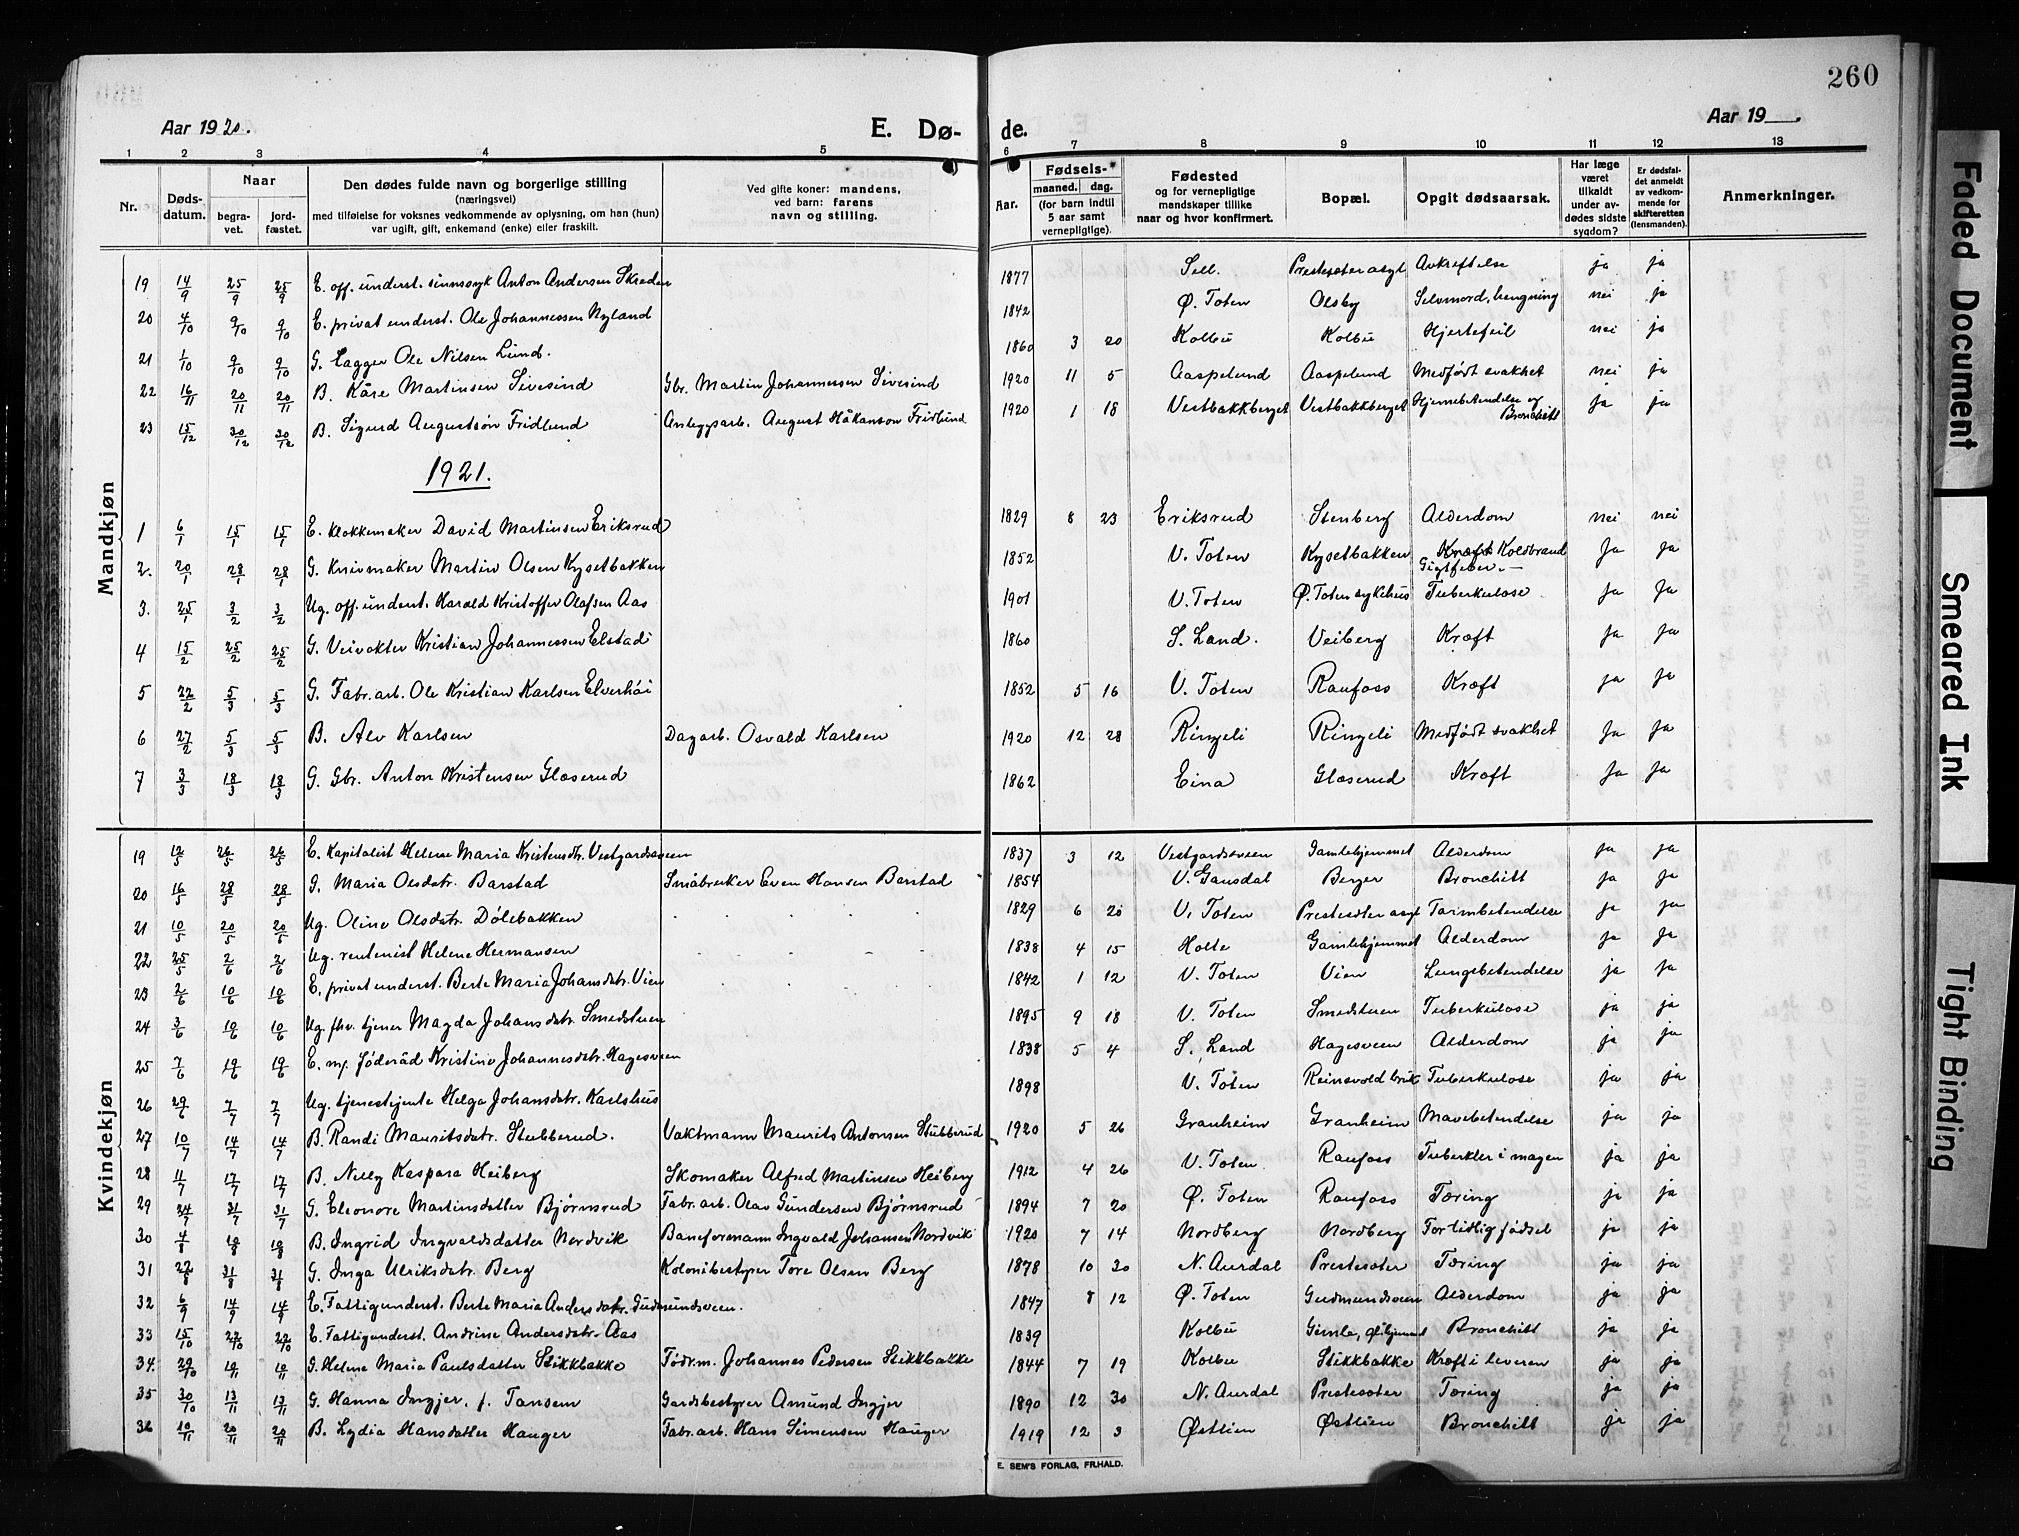 260
Aar 1920.
E. Dø-
de.
Aar 19
1 2 3 4 5 6 7 8 9 10 11 12 13
Nr.
Døds-
datum.
Naar
begra-
vet.
jord-
fæstet.
Den dødes fulde navn og borgerlige stilling
(næringsvei)
med tilføielse for voksnes vedkommende av oplysning, om han (hun)
var ugift, gift, enkemand (enke) eller fraskilt.
Ved gifte koner: mandens,
ved barn: farens
navn og stilling.
Aar.
Fødsels-
maaned. dag.
(for barn indtil
5 aar samt
vernepligtige).
Fødested
og for vernepligtige
mandskaper tillike
naar og hvor konfirmert.
Bopæl.
Opgit dødsaarsak.
Har læge
været
tilkaldt
under av-
dødes sidste
sygdom?
Er dødsfal-
det anmeldt
av vedkom-
mende for
skifteretten
(lensmanden).
Anmerkninger.
Mandkjøn
19 14/9 25/9 25/9 E. off. underst. sinnssyk Anton Andersen Skreden 1877 Sell. Prestesæter asyl Avkreftelse ja ja
20 4/10 9/10 9/10 E. privat underst. Ole Johannessen Nyland 1842 Ø. Toten Olsby Selvmord, hengning nei ja
21 1/10 9/10 9/10 G. Lagger Ole Nilsen Lund. 1860 3 20 Kolbu Kolbu Hjertefeil nei ja
22 16/11 20/11 20/11 B. Kåre Martinsen Sivesind Gbr. Martin Johannessen Sivesind 1920 11 5 Aaspelund Aaspelund Medfødt svakhet nei ja
23 15/12 30/12 30/12 B. Sigurd Augustsøn Fridlund Anleggsarb. August Håkanson Fridlund 1920 1 18 Vestbakkberget Vestbakkberget Hjernebetendelse og Bronchitt ja ja
1921.
1 6/1 15/1 15/1 E. klokkemaker David Martinsen Eriksrud 1829 8 23 Eriksrud Stenberg Alderdom nei nei
2. 20/1 28/1 28/1 G. Knivmaker Martin Olsen Kysetbakken 1852 V. Toten Kysetbakken Kræft Koldbrand Gigtfeber.- Ja Ja
3. 25/1 3/2 3/2 Ug. off. underst. Harald Kristoffer Olafsen Aas 1901 V. Toten Ø. Toten sykehus Tuberkulose ja Ja
4 15/2 25/2 25/2 G. Veivokter Kristian Johannessen Elstad 1860 S. Land. Veiberg Kræft ja Ja
5 22/2 5/3 5/3 G. Fabr. arb. Ole Kristian Karlsen Elverhöi 1852 5 16 V. Toten Raufoss Kræft ja Ja
6 27/2 5/3 5/3 B. Alv Karlsen Dagarb. Osvald Karlsen 1920 12 28 Ringeli Ringeli Medfødt svakhet Ja Ja
7 3/3 18/3 18/3 G. Gbr. Anton Kristensen Glæserud 1862 Eina Glæserud Kræft Ja Ja
Kvindekjøn
19 12/5 26/5 26/5 E. Kapitalist Helene Maria Kristensdtr. Vestgardsveen 1837 3 12 Vestgardsveen Gamlehjemmet Alderdom ja ja
20 16/5 28/5 28/5 G. Maria Olsdatr. Barstad Småbruker Even Hansen Barstad 1854 V. Gausdal Berger Bronchitt ja ja
21 10/5 20/5 20/5 Ug. Oline Olsdatr. Dölebakken 1829 6 20 V. Toten Prestesæter asyl Tarmbetendelse ja ja
22 25/5 2/6 2/6 Ug. rentenist Helene Hermansen 1838 4 15 Holte Gamlehjemmet Alderdom ja ja
23 2/6 10/6 10/6 E. privat underst. Berte Maria Johansdatr. Vien 1842 1 12 V. Toten Vien Lungebetendelse ja ja
24 3/6 10/6 10/6 Ug. fhv. tjener Magda Johansdatr. Smedstuen 1895 9 18 V. Toten Smedstuen Tuberkulose ja ja
25 7/6 19/6 19/6 E. m/. føderåd Kristine Johannesdtr. Hagesveen 1838 5 4 S. Land Hagesveen Alderdom ja ja
26 29/6 7/7 7/7 Ug. tjenestejente Helga Johansdatr. Karlshus 1898 V. Toten Reinsvold bruk Tuberkulose ja ja
27 10/7 14/7 14/7 B. Randi Mauritsdatr. Stubberud. Vaktmann Maurits Antonsen Stubberud 1920 5 26 Granheim Granheim Mavebetendelse ja ja
28 11/7 17/7 17/7 B. Nelly Kaspara Heiberg Skomaker Alfred Martinsen Heiberg 1912 4 26 V. Toten Raufoss Tuberkler i magen ja ja
29 24/7 31/7 31/7 G. Eleonore Martinsdatter Bjørnsrud Fabr. arb. Olav Gundersen Bjørnsrud 1894 7 20 Ø. Toten Raufoss Tæring ja ja
30 4/8 18/8 18/8 B. Ingrid Ingvaldsdatter Nordvik Baneformann Ingvald Johansen Nordvik 1920 7 14 Nordberg Nordberg For tidlig fødsel ja ja
31 22/8 31/8 31/8 G. Inga Ulriksdatr. Berg Kolonibestyrer Tore Olsen Berg 1878 10 30 N. Aurdal Prestesæter Tæring ja ja
32 6/9 14/9 14/9 E. Fattigunderst. Berte Maria Andersdatr. Gudmundsveen. 1847 8 12 Ø. Toten Gudmundsveen Alderdom ja ja
33 15/10 22/10 22/10 E. Fattigunderst. Andrine Andersdatr. Aas 1839 Kolbu Gimle, Bronchitt ja ja
34. 29/10 10/11 10/11 G. Helene Maria Paulsdatter Stikkbakke Födr.m. Johannes Pedersen Stikkbakke 1844 7 19 Kolbu Stikkbakke Kræft i leveren ja ja
35 30/10 13/11 13/11 G. Hanna Ingjer. f. Tansem Gardsbestyrer Amund Ingjer 1890 12 30 N. Aurdal Prestesæter Tæring ja ja
36 10/11 20/11 20/11 B. Lydia Hansdatter Hauger Fabr. arb. Hans Simensen Hauger 1919 12 3 Østlien Østlien Bronchitt ja ja
E. SEM'S FORLAG, FR.HALD.
Faded Document
Smeared Ink
Tight Binding